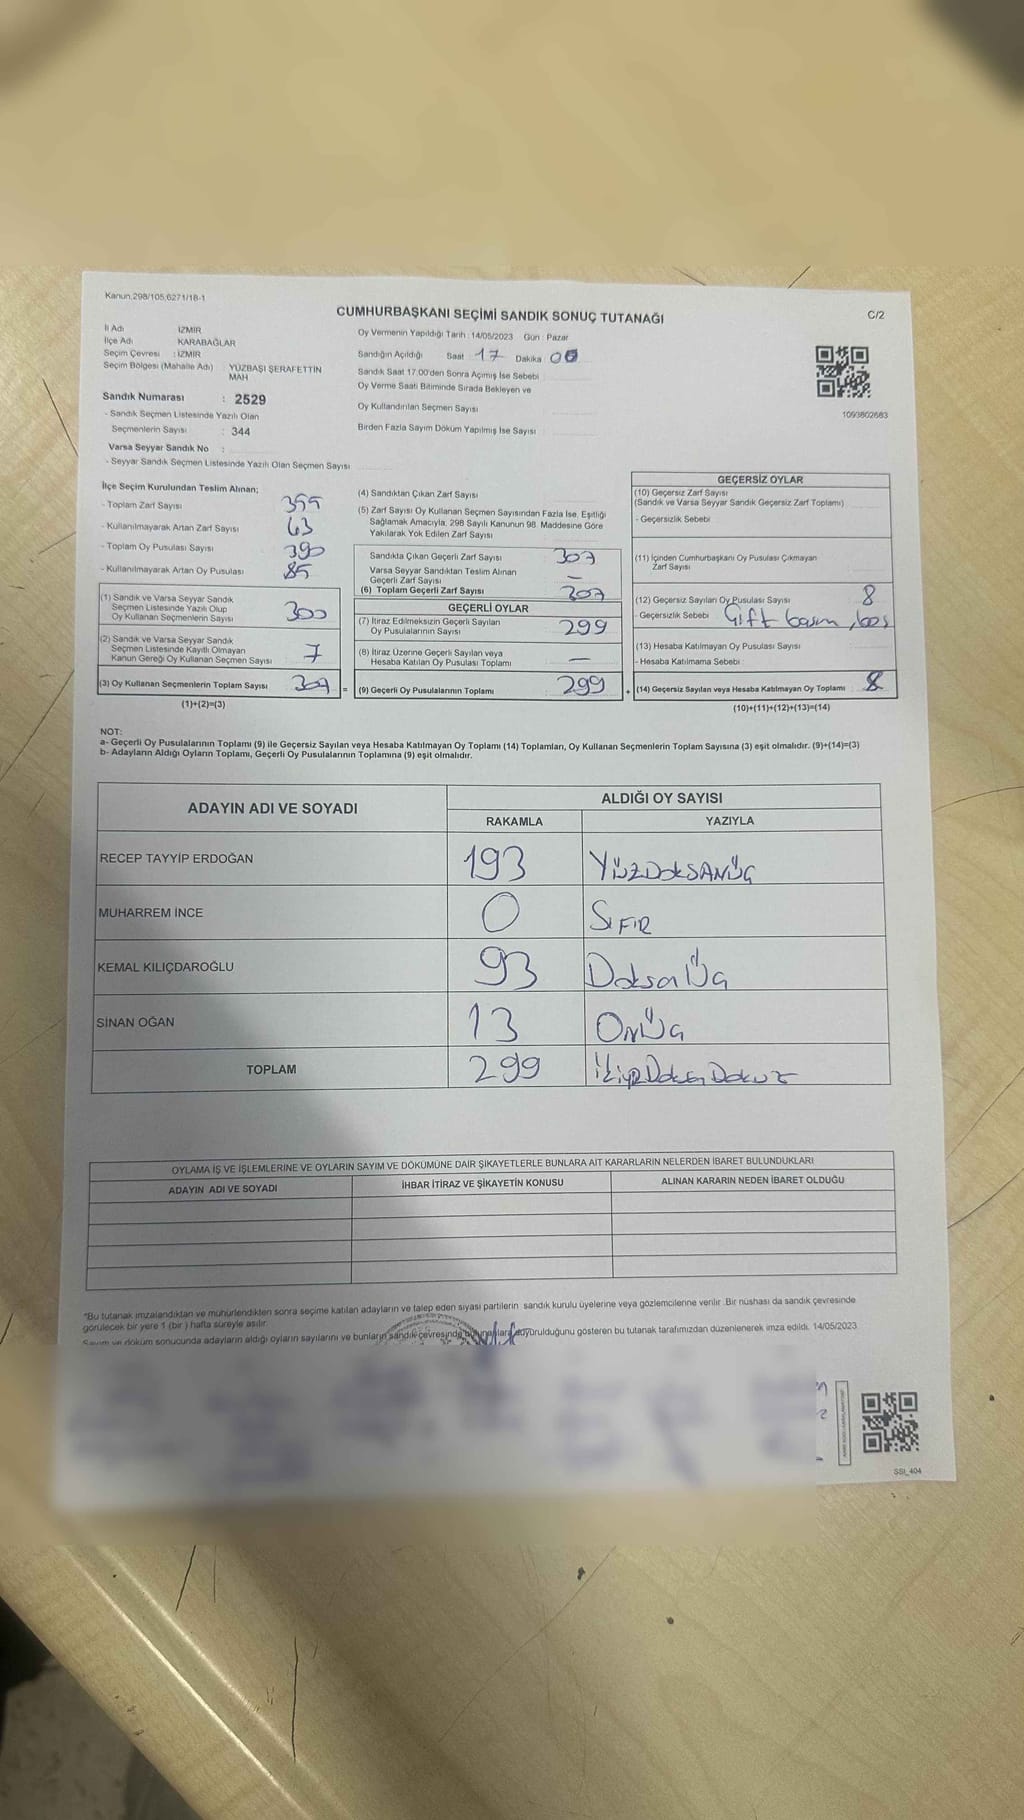 Kanun.298/105,6271/18-1
CUMHURBAŞKANI SEÇİMİ SANDIK SONUÇ TUTANAĞI
C/2
İl Adı İZMİR
İlçe Adı KARABAĞLAR
Seçim Çevresi : İZMİR
Seçim Bölgesi (Mahalle Adı) YÜZBAŞI ŞERAFETTİN
MAH
Sandık Numarası : 2529
- Sandık Seçmen Listesinde Yazılı Olan
Seçmenlerin Sayısı : 344
Varsa Seyyar Sandık No :
- Seyyar Sandık Seçmen Listesinde Yazılı Olan Seçmen Sayısı
Oy Vermenin Yapıldığı Tarih : 14/05/2023 Gün : Pazar
Sandığın Açıldığı Saat 17 Dakika 00
Sandık Saat 17.00'den Sonra Açımış İse Sebebi
Oy Verme Saati Bitiminde Sırada Bekleyen ve
Oy Kullandırılan Seçmen Sayısı
Birden Fazla Sayım Döküm Yapılmış İse Sayısı
1093802683
İlçe Seçim Kurulundan Teslim Alınan;
- Toplam Zarf Sayısı
- Kullanılmayarak Artan Zarf Sayısı 63
- Toplam Oy Pusulası Sayısı 390
- Kullanılmayarak Artan Oy Pusulası 85
(1) Sandık ve Varsa Seyyar Sandık
Seçmen Listesinde Yazılı Olup
Oy Kullanan Seçmenlerin Sayısı 300
(2) Sandık ve Varsa Seyyar Sandık
Seçmen Listesinde Kayıtlı Olmayan
Kanun Gereği Oy Kullanan Seçmen Sayısı 7
(3) Oy Kullanan Seçmenlerin Toplam Sayısı 307 =
(1)+(2)=(3)
(4) Sandıktan Çıkan Zarf Sayısı
(5) Zarf Sayısı Oy Kullanan Seçmen Sayısından Fazla İse, Eşitliği
Sağlamak Amacıyla, 298 Sayılı Kanunun 98. Maddesine Göre
Yakılarak Yok Edilen Zarf Sayısı
Sandıkta Çıkan Geçerli Zarf Sayısı 307
Varsa Seyyar Sandıktan Teslim Alınan
Geçerli Zarf Sayısı –
(6) Toplam Geçerli Zarf Sayısı 307
GEÇERLİ OYLAR
(7) İtiraz Edilmeksizin Geçerli Sayılan
Oy Pusulalarının Sayısı 299
(8) İtiraz Üzerine Geçerli Sayılan veya
Hesaba Katılan Oy Pusulası Toplamı –
(9) Geçerli Oy Pusulalarının Toplamı 299 +
GEÇERSİZ OYLAR
(10) Geçersiz Zarf Sayısı
(Sandık ve Varsa Seyyar Sandık Geçersiz Zarf Toplamı)
- Geçersizlik Sebebi
(11) İçinden Cumhurbaşkanı Oy Pusulası Çıkmayan
Zarf Sayısı
(12) Geçersiz Sayılan Oy Pusulası Sayısı 8
- Geçersizlik Sebebi Çift basım, boş
(13) Hesaba Katılmayan Oy Pusulası Sayısı
- Hesaba Katılmama Sebebi
(14) Geçersiz Sayılan veya Hesaba Katılmayan Oy Toplamı 8
(10)+(11)+(12)+(13)=(14)
NOT:
a- Geçerli Oy Pusulalarının Toplamı (9) ile Geçersiz Sayılan veya Hesaba Katılmayan Oy Toplamı (14) Toplamları, Oy Kullanan Seçmenlerin Toplam Sayısına (3) eşit olmalıdır. (9)+(14)=(3)
b- Adayların Aldığı Oyların Toplamı, Geçerli Oy Pusulalarının Toplamına (9) eşit olmalıdır.
ADAYIN ADI VE SOYADI ALDIĞI OY SAYISI
RAKAMLA YAZIYLA
RECEP TAYYİP ERDOĞAN 193 YÜZDOKSANÜÇ
MUHARREM İNCE 0 SIFIR
KEMAL KILIÇDAROĞLU 93 DoksaÜç
SİNAN OĞAN 13 OnÜç
TOPLAM 299
OYLAMA İŞ VE İŞLEMLERİNE VE OYLARIN SAYIM VE DÖKÜMÜNE DAİR ŞİKAYETLERLE BUNLARA AİT KARARLARIN NELERDEN İBARET BULUNDUKLARI
ADAYIN ADI VE SOYADI İHBAR İTİRAZ VE ŞİKAYETİN KONUSU ALINAN KARARIN NEDEN İBARET OLDUĞU
"Bu tutanak imzalandıktan ve mühürlendikten sonra seçime katılan adayların ve talep eden siyasi partilerin sandık kurulu üyelerine veya gözlemcilerine verilir. Bir nüshası da sandık çevresinde
görülecek bir yere 1 (bir) hafta süreyle asılır.
Sayım ve döküm sonucunda adayların aldığı oyların sayılarını ve bunların sandık çevresinde duyurulduğunu gösteren bu tutanak tarafımızdan düzenlenerek imza edildi. 14/05/2023
SSI_404